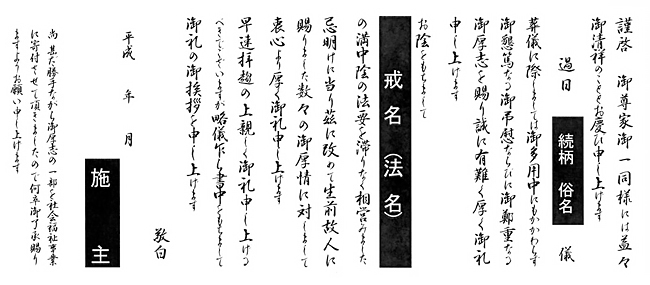 謹啓 御尊家御一同様には益々
御清祥のことゝお慶び申し上げます
過日 続柄 俗名 儀
葬儀に際しましては御多用中にもかかわらず
御懇篤なる御弔慰ならびに御鄭重なる
御厚志を賜り誠に有難く厚く御礼
申し上げます
お陰をもちまして
戒名(法名)
の満中陰の法要を滞りなく相営みました
忌明けに当り玆に改めて生前故人に
賜りました数々の御厚情に対しまして
衷心より厚く御礼申し上げます
早速拝趨の上親しく御礼申し上げる
べきでございますが略儀乍ら書中をもちまして
御礼の御挨拶を申し上げます
敬白
平成 年 月
施 主
尚 甚だ勝手ながら御厚志の一部を社会福祉事業
に寄付させて頂きましたので何卒御了承賜り
ますようお願い申し上げます